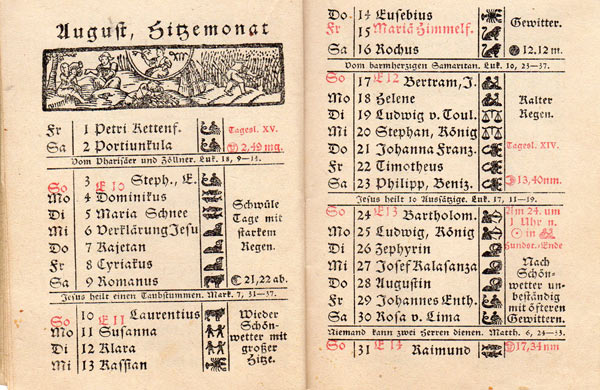 August, Hitzemonat
Fr 1 Petri Kettenf. Tagesl. XV.
Sa 2 Portiunkula 2.49 mg.
Vom Pharisäer und Zöllner. Luk. 18, 9—14.
So 3 E 10 Steph., E.
Mo 4 Dominikus
Di 5 Maria Schnee Schwüle
Mi 6 Verklärung Jesu Tage mit
Do 7 Kajetan starkem
Fr 8 Cyriakus Regen.
Sa 9 Romanus 21,22 ab.
Jesus heilt einen Taubstummen. Mark. 7, 31—37.
So 10 E 11 Laurentius Wieder
Mo 11 Susanna Schön-
Di 12 Klara wetter mit
Mi 13 Kassian großer
Hitze.
Do. 14 Eusebius
Fr 15 Mariä Himmelf. Gewitter.
Sa 16 Rochus 12.12 m.
Vom barmherzigen Samaritan. Luk. 10, 23—37.
So 17 E 12 Bertram, J.
Mo 18 Helene Kalter
Di 19 Ludwig v. Toul. Regen.
Mi 20 Stephan, König
Do 21 Johanna Franz. Tagesl. XIV.
Fr 22 Timotheus
Sa 23 Philipp, Beniz. 13,40nm.
Jesus heilt 10 Aussätzige. Luk. 17, 11—19.
So 24 E 13 Bartholom. Am 24. um
Mo 25 Ludwig, König 1 Uhr n.
Di 26 Zephyrin in
Hundst.-Ende
Mi 27 Josef Kalasanza Nach
Do 28 Augustin Schön-
wetter un-
Fr 29 Johannes Enth. beständig
mit öfteren
Sa 30 Rosa v. Lima Gewittern.
Niemand kann zwei Herren dienen. Matth. 6, 24—33.
So 31 E 14 Raimund 17,34 nm